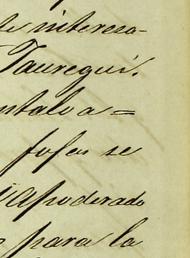 te interesa-
Jauregui.
ntalo a=
fojas se
apoderado
para la